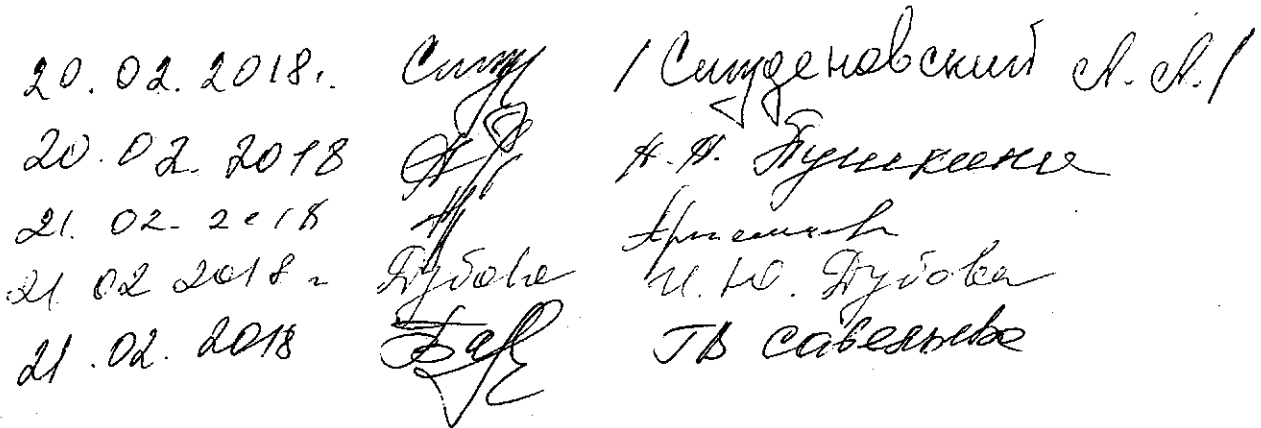 20.02.2018г. / Студеновский А.А./
20.02.2018 Н.Н. Пушкина
21.02.2018
21.02 2018г Дубова И.Ю. Дубова
21.02.2018 ТВ Савельева